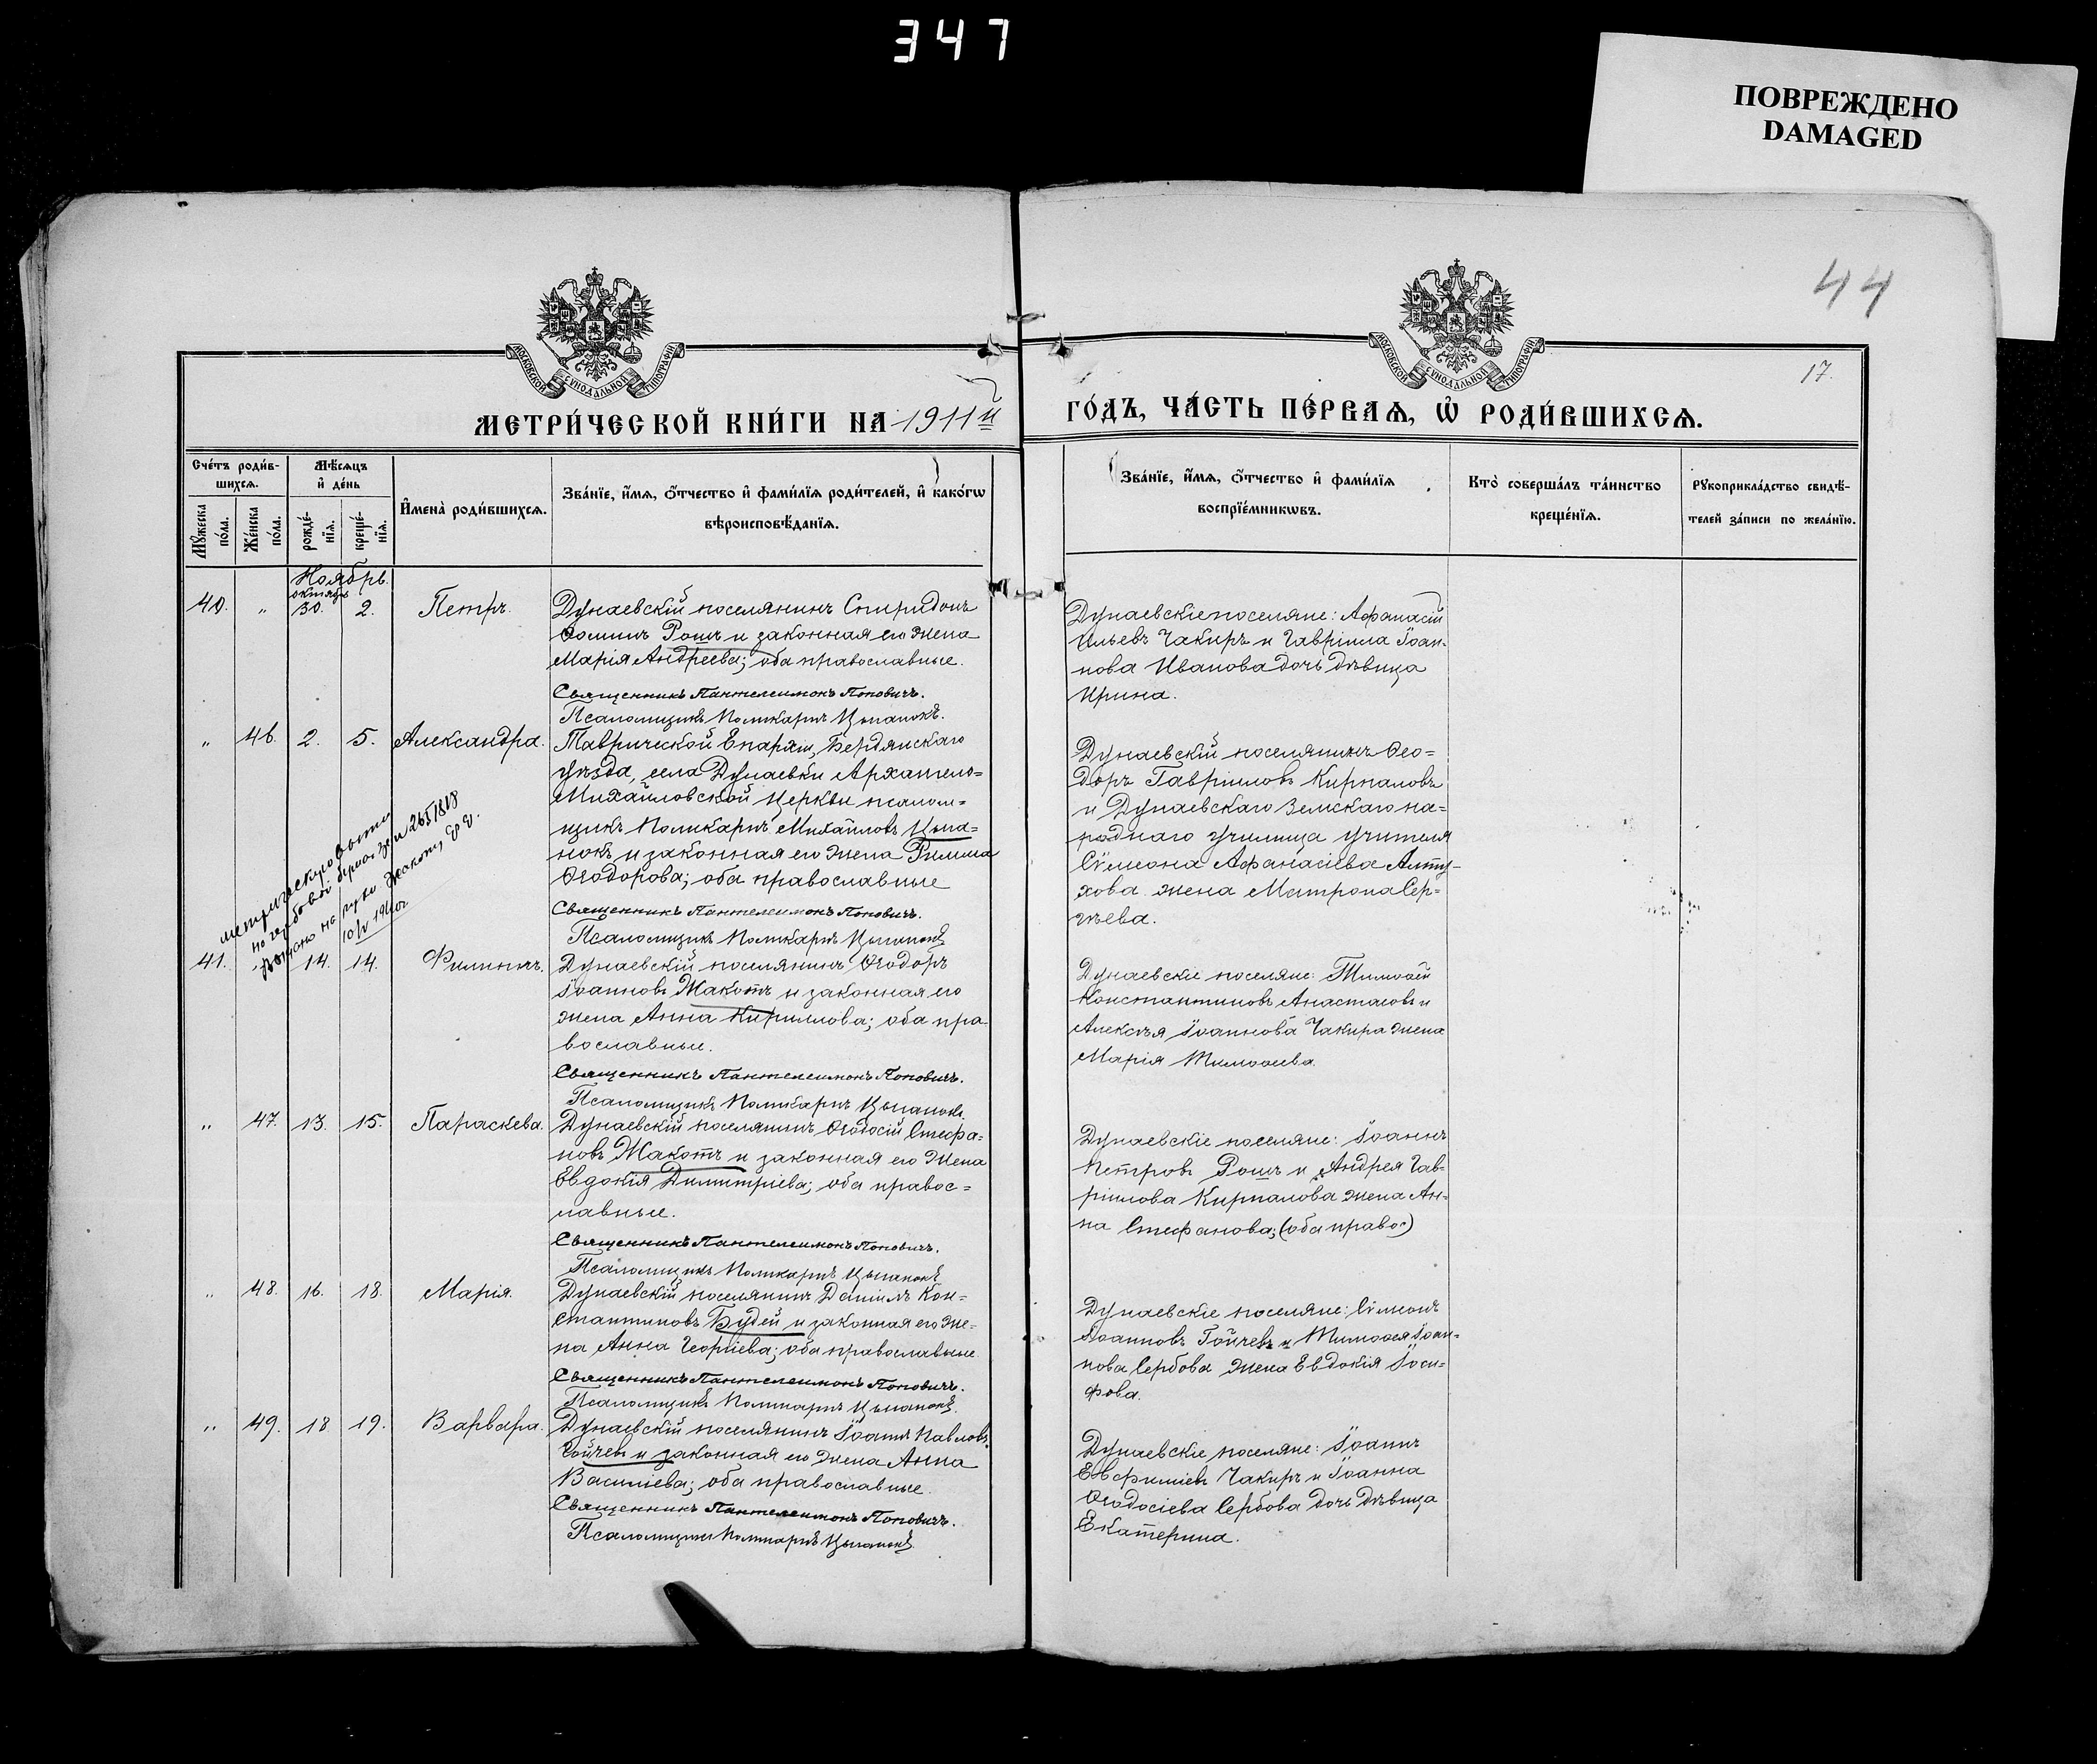 347
ПОВРЕЖДЕНО
DAMAGED
44
17.
МОСКОВСКОЙ СѴНОДАЛЬНОЙ ТИПОГРАФІИ
МОСКОВСКОЙ СѴНОДАЛЬНОЙ ТИПОГРАФІИ
МЕТРИ́ЧЕСКОЙ КНИ́ГИ НА 1911й
ГО́ДЪ, ЧА́СТЬ ПЕ́РВАѦ, Ѡ҆ РОДИ́ВШИХСѦ.
Сче́тъ роди́в-
шихсѧ.
Мꙋ́жеска по́ла.
Же́нска по́ла.
Мѣ́сѧцъ
и҆ де́нь
рожде́-
нїѧ.
креще́-
нїѧ.
И҆мена̀ роди́вшихсѧ.
Зва́нїе, и҆́мѧ, ѻ҆́тчество и҆ фами́лїѧ роди́телей, и҆ како́гѡ
вѣроисповѣ́данїѧ.
Зва́нїе, и҆́мѧ, ѻ҆́тчество и҆ фами́лїѧ
воспрїе́мникѡвъ.
Кто̀ соверша́лъ та́инство
креще́нїѧ.
Рꙋкоприкла́дство свидѣ́-
телей за́писи по жела́нїю.
Ноябрь.
октябр
40. " 30. 2. Петръ.
Дунаевскій поселянинъ Спиридонъ
Ѳоминъ Рошъ и законная его жена
Марія Андреева; оба православные.
Священникъ Пантелеимонъ Поповичъ.
Псаломщикъ Поликарпъ Цыпанокъ.
Дунаевскіе поселяне: Афанасій
Ильевъ Чакиръ и Гавріила Іоан-
нова Иванова дочь дѣвица
Ирина.
" 46. 2. 5. Александра.
Таврической Епархіи, Бердянскаго
уѣзда, села Дунаевки Архангело=
Михайловской церкви псалом=
щикъ Поликарпъ Михайловъ Цыпа=
нокъ и законная его жена Римма
Ѳеодорова; оба православные
Священникъ Пантелеимонъ Поповичъ.
Псаломщикъ Поликарпъ Цыпанокъ
Дунаевскій поселянинъ Ѳео=
доръ Гавріиловъ Кирпаловъ
и Дунаевскаго земскаго на=
роднаго училища учителя
Сѵмеона Афанасіева Алту-
хова жена Матрона Сер=
гѣева.
на гербовой
на руки Жакоту
41. " 14. 14. Филиппъ.
Дунаевскій поселянинъ Ѳеодоръ
Іоанновъ Жакотъ и законная его
жена Анна Кириллова; оба пра-
вославные.
Священникъ Пантелеимонъ Поповичъ.
Псаломщикъ Поликарпъ Цыпанокъ.
Дунаевскіе поселяне: Тимоѳей
Константиновъ Анастасовъ и
Алексѣя Іоаннова Чакира жена
Марія Тимоѳеева.
" 47. 13. 15. Параскева.
Дунаевскій поселянинъ Ѳеодосій Стефа=
новъ Жакотъ и законная его жена
Евдокія Димитріева; оба правос=
лавные.
Священникъ Пантелеимонъ Поповичъ.
Псаломщикъ Поликарпъ Цыпанокъ
Дунаевскіе поселяне: Іоаннъ
Петровъ Рошъ и Андрея Гав-
ріилова Кирпалова жена Ан-
на Стефанова; (оба правос)
" 48. 16. 18. Марія.
Дунаевскій поселянинъ Даніилъ Кон=
стантиновъ Будей и законная его же-
на Анна Георгіева; оба православные
Священникъ Пантелеимонъ Поповичъ.
Псаломщикъ Поликарпъ Цыпанокъ.
Дунаевскіе поселяне: Сѵмеонъ
Іоанновъ Гойчевъ и Тимоѳея Іоан=
нова Сербова жена Евдокія Іоси=
фова.
" 49. 18 19. Варвара.
Дунаевскій поселянинъ Іоаннъ Павловъ
Гойчевъ и законная его жена Анна
Василіева; оба православные.
Священникъ Пантелеимонъ Поповичъ.
Псаломщикъ Поликарпъ Цыпанокъ.
Дунаевскіе поселяне: Іоаннъ
Евфиміевъ Чакиръ и Іоанна
Ѳеодосіева Сербова дочь дѣвица
Екатерина.